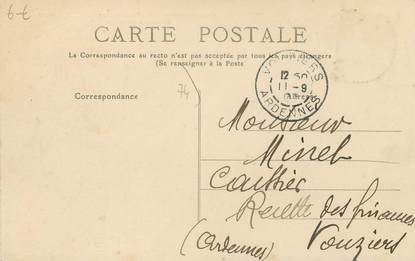 6-€
CARTE POSTALE
La Correspondance au recto n'est pas acceptée par tous les pays étrangers
(Se renseigner à la Poste
VOUZIERS
12
11-9
ARDENNES
Correspondance
74
Monsieur
Minet
Caissier
Recette des finances
(Ardennes) Vouziers